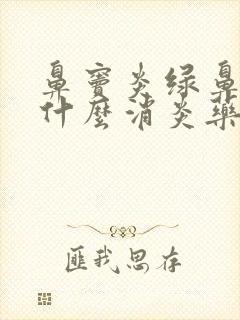 鼻窦炎绿鼻
什麼消炎藥
匪我思存